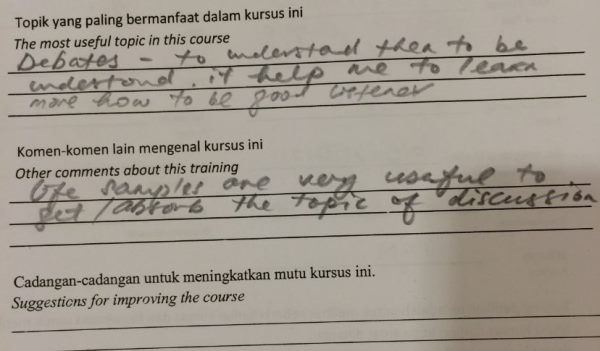 Topik yang paling bermanfaat dalam kursus ini
The most useful topic in this course
Debates - to understand then to be
understood. it help me to learn
more how to be good listener
Komen-komen lain mengenal kursus ini
Other comments about this training
life samples are very useful to
get/absorb the topic of discussion
Cadangan-cadangan untuk meningkatkan mutu kursus ini.
Suggestions for improving the course